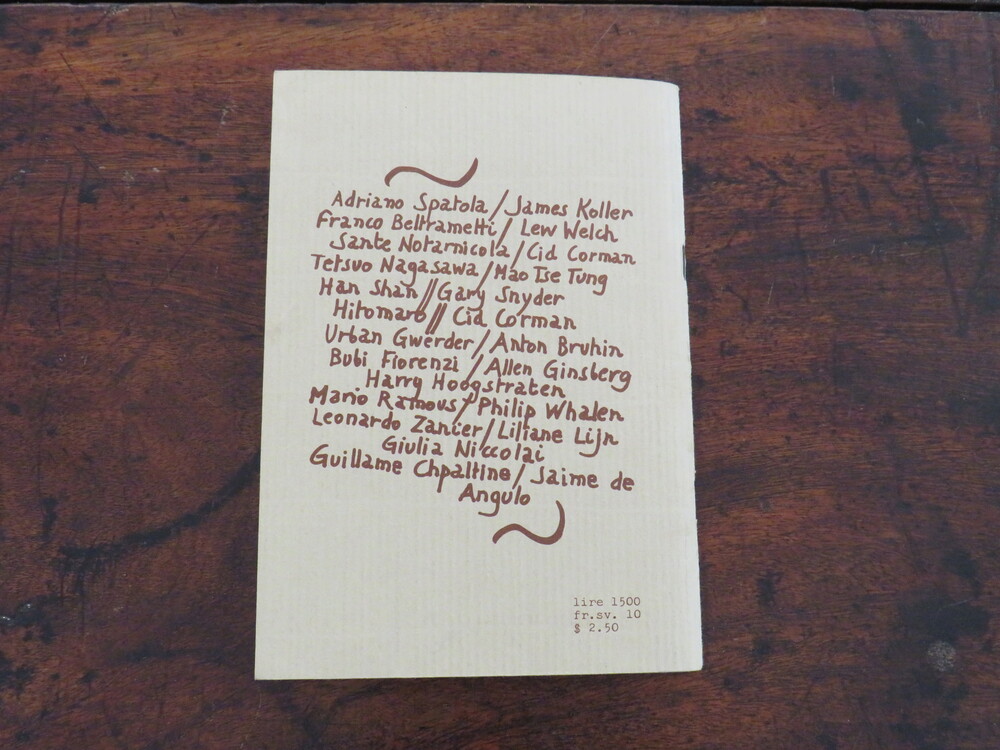 Adriano Spatola / James Koller
Franco Beltrametti / Lew Welch
Sante Notarnicola / Cid Corman
Tetsuo Nagasawa / Mao Tse Tung
Han Shan // Gary Snyder
Hitomaro // Cid Corman
Urban Gwerder / Anton Bruhin
Bubi Fiorenzi / Allen Ginsberg
Harry Hoogstraten
Mario Ramous / Philip Whalen
Leonardo Zanier / Liliane Lijn
Giulia Niccolai
Guillame Chpaltine / Jaime de
Angulo
lire 1500
fr.sv. 10
$ 2.50